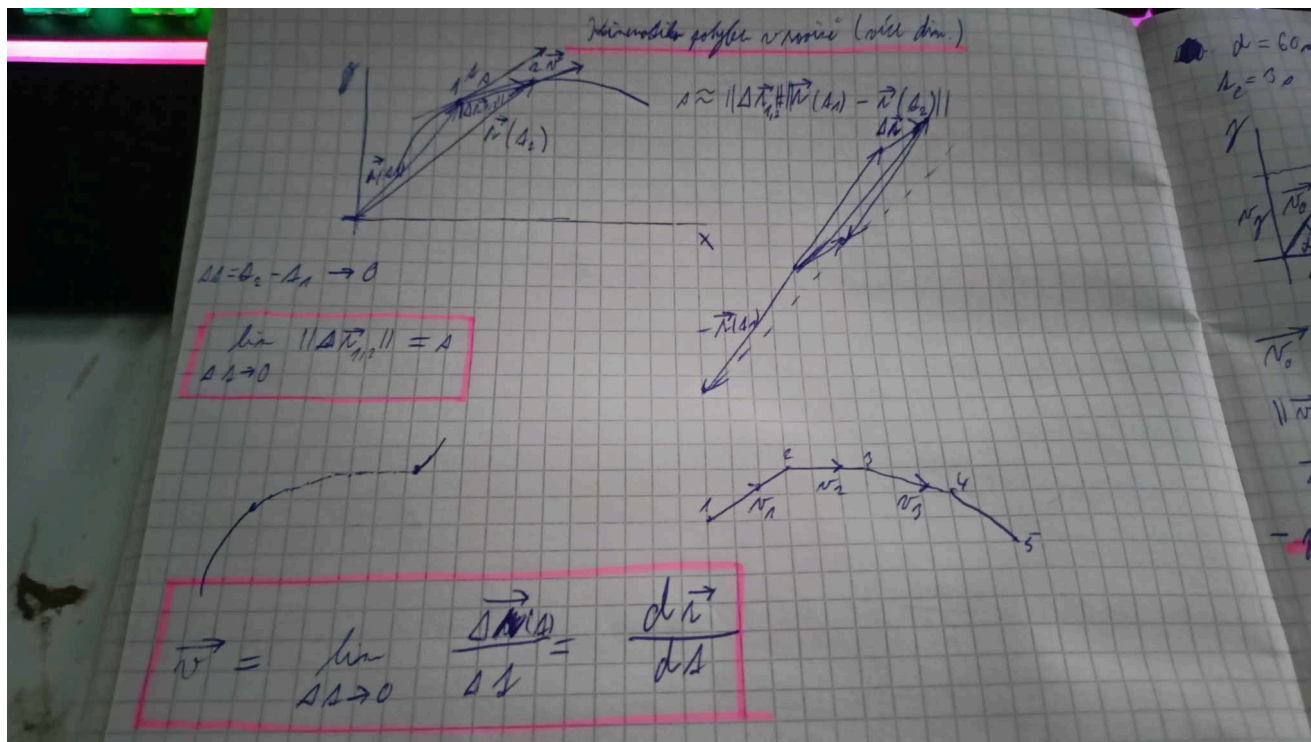 Kinematika pohybu v rovině (více dim.)
y
1 Δs 2 v⃗
||Δr⃗₁,₂||
r⃗(t₁)
r⃗(t₂)
x
s ≈ ||Δr⃗₁,₂|| = ||r⃗(t₁) - r⃗(t₂)||
Δr⃗
-r⃗(t₁)
Δt = t₂ - t₁ → 0
lim ||Δr⃗₁,₂|| = s
Δt → 0
1 2 3 4 5
v₁ v₂ v₃
v⃗ = lim Δr⃗(t) / Δt = dr⃗ / dt
Δt → 0
d = 60
t₂ = 3s
y
v_y v⃗₀
v⃗₀
||v⃗